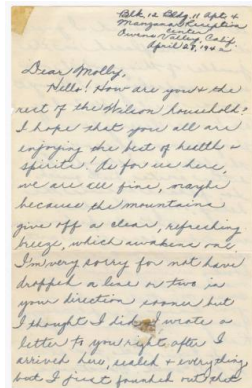 Blk. 12 Bldg. 11 Apt. 4
Manzanar Reception
Center
Owens Valley, Calif.
April 29, 1942
Dear Molly,
Hello! How are you & the
rest of the Wilson household?
I hope that you all are
enjoying the best of health &
spirits! As for us here,
we are all fine, maybe
because the mountains
give off a clear, refreshing
breeze, which awakens one
I'm very sorry for not have
dropped a line or two in
your direction sooner but
I thought I did. I wrote a
letter to you right after I
arrived here, sealed & everything
but I just founded out that